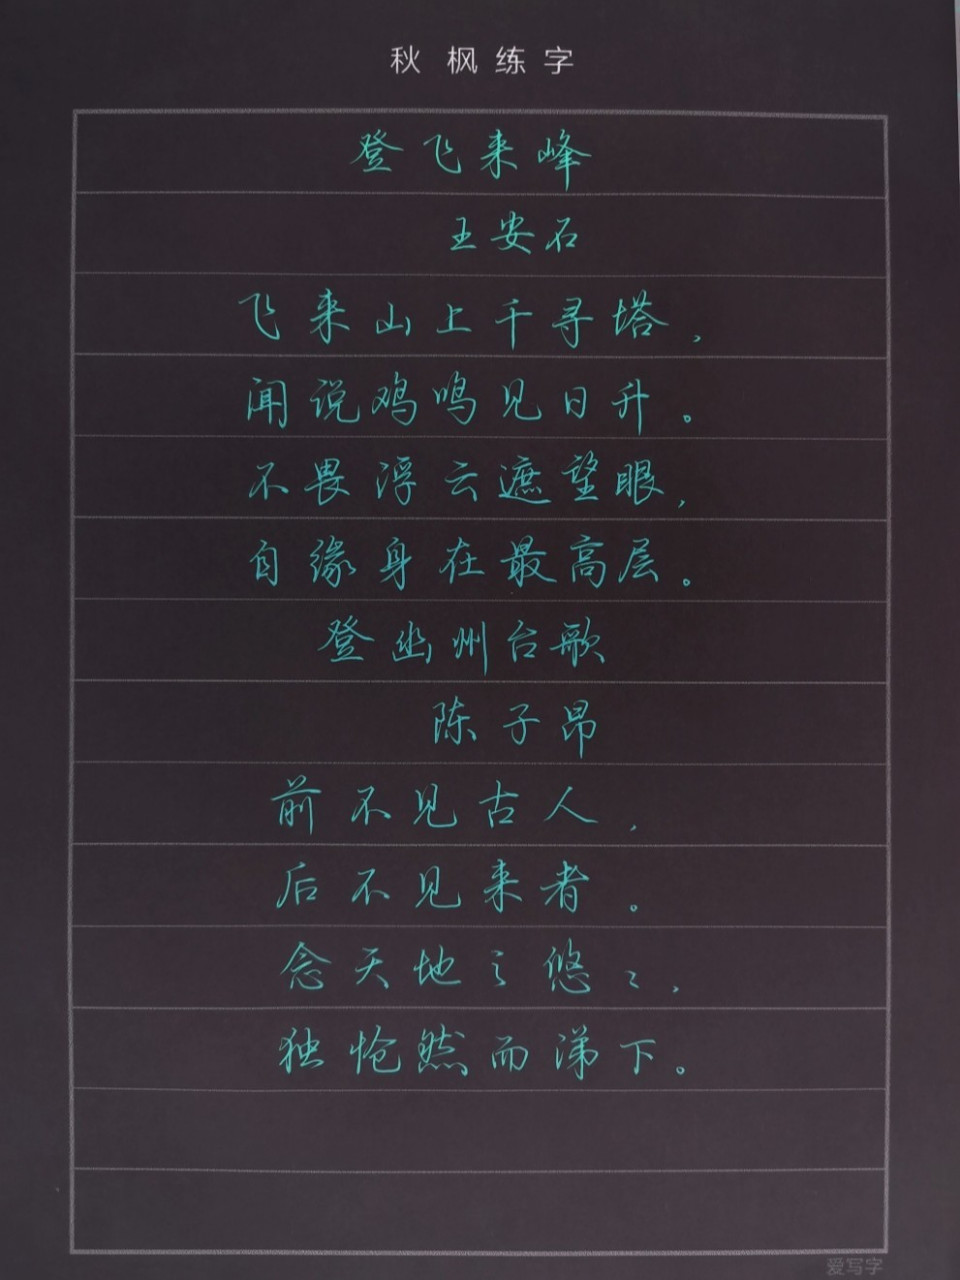 秋枫练字
登飞来峰
王安石
飞来山上千寻塔，
闻说鸡鸣见日升。
不畏浮云遮望眼，
自缘身在最高层。
登幽州台歌
陈子昂
前不见古人，
后不见来者。
念天地之悠々，
独怆然而涕下。
爱写字